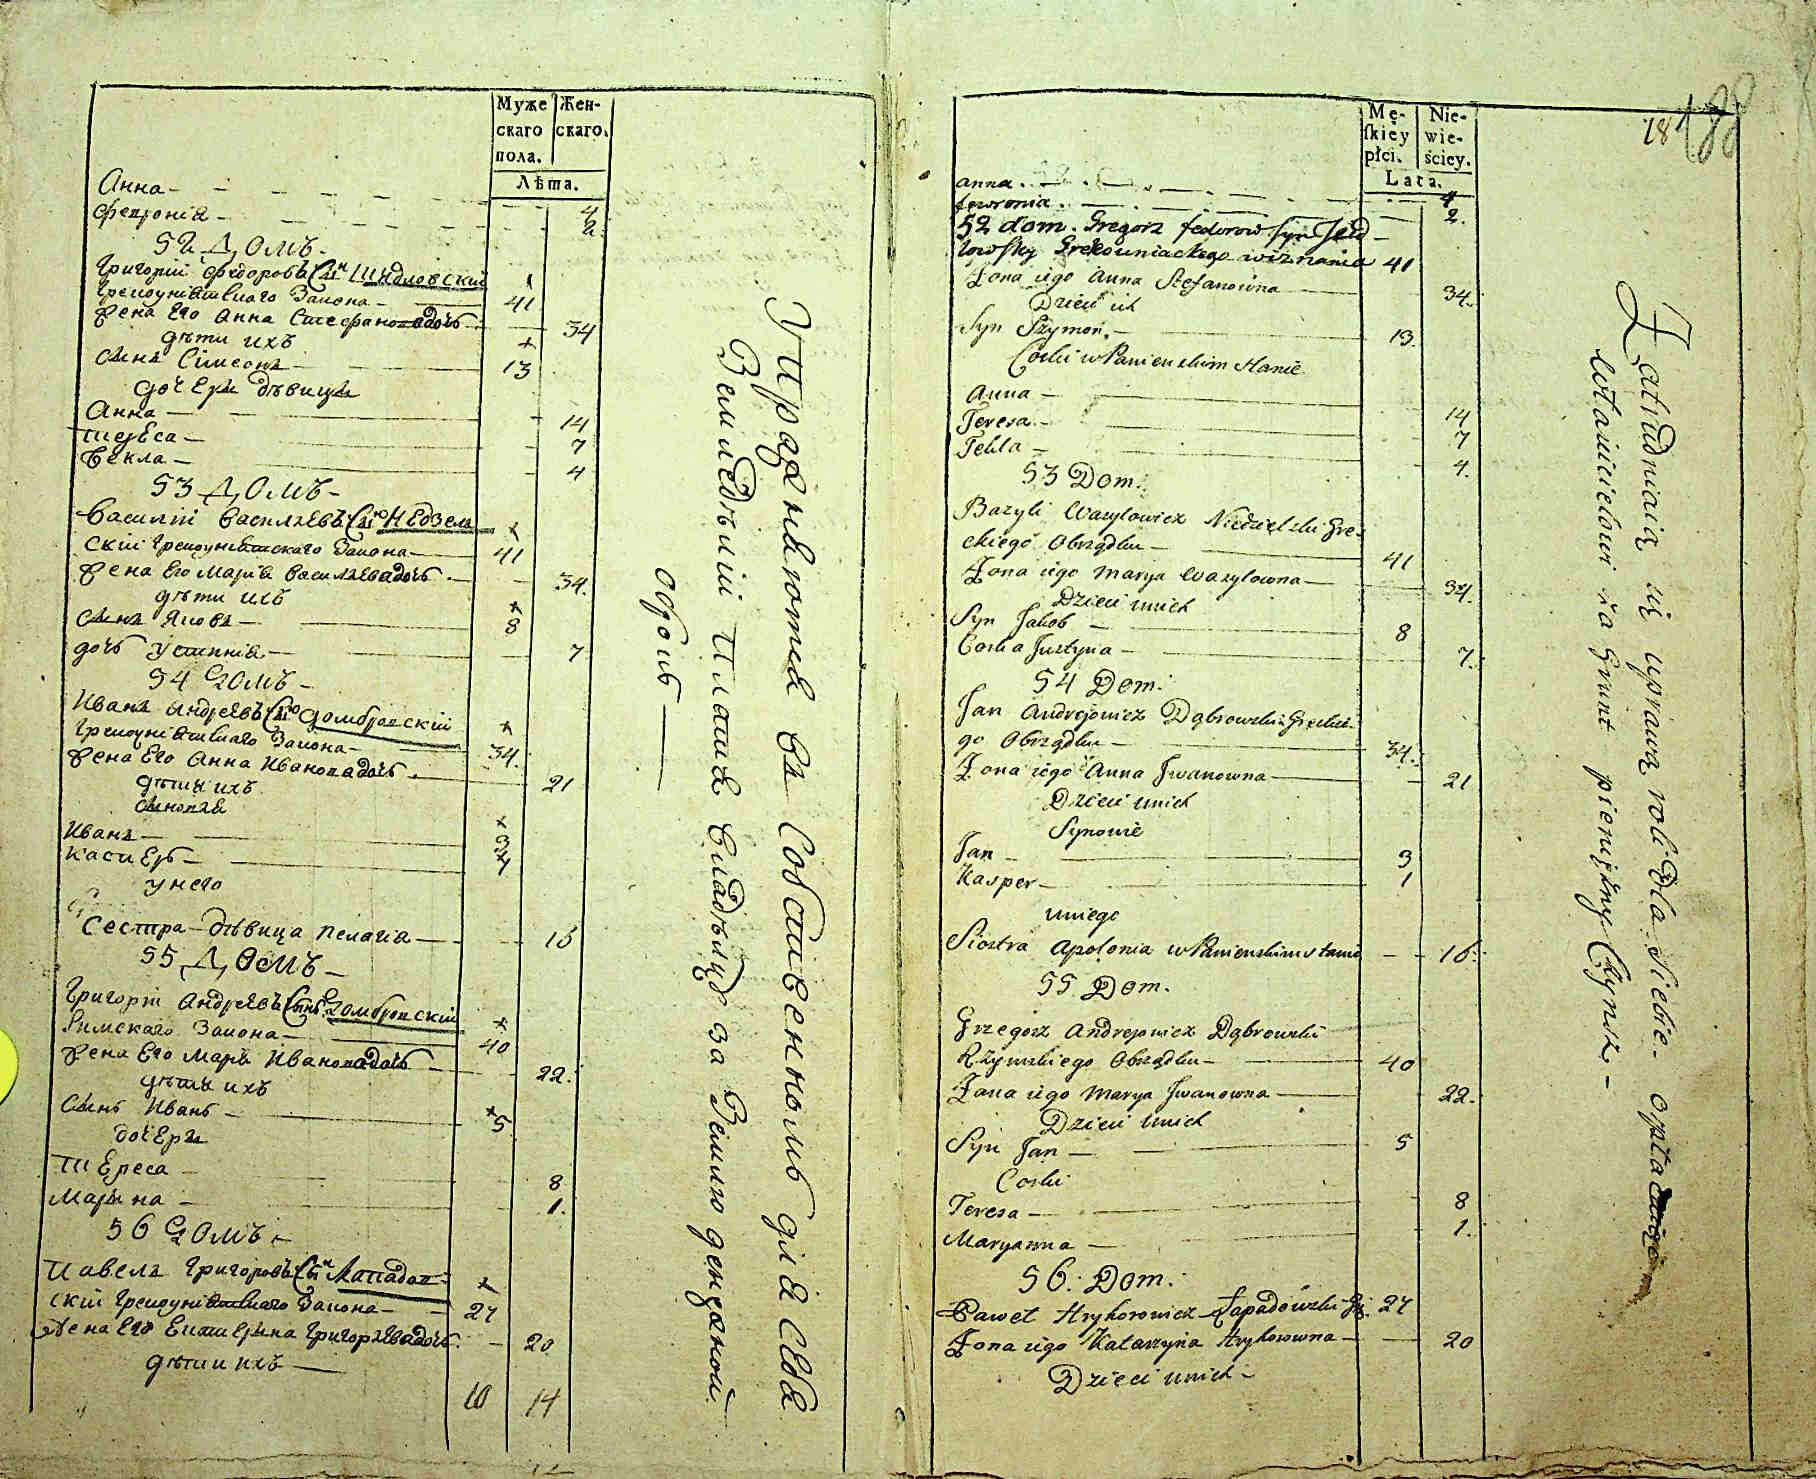 Муже
скаго
пола.
Жен-
скаго.
Лѣта.
Анна — 4
Февронiя — 2
52 Домъ.
Григорiй Федоровъ Сынъ Шидловскiй
Грекоунiатскаго Закона — 41
Жена Его Анна Стефановадочь — 34
дѣти ихъ
Сынъ Симеонъ — 13
дочери дѣвицы
Анна — 14
Тереса — 7
Фекла — 4
53 Домъ —
Василiй Васильевъ Сынъ Недзель
скiй Грекоунiатскаго Закона — 41
Жена Его Марiя Васильевадочь — 34.
дѣти ихъ
Сынъ Яковъ — 8
дочь Устинiя — 7
54 Домъ —
Иванъ Андреевъ Сынъ Домбровскiй
Грекоунiатскаго Закона — 34.
Жена Его Анна Ивановадочь. 21
дѣти ихъ
Сыновья
Иванъ — 3
Касперъ —
У него
Сестра дѣвица Пелагiя — 16
55 Домъ —
Григорiй Андреевъ Сынъ Домбровскiй
Римскаго Закона — 40
Жена Его Марья Ивановадочь 22.
дѣти ихъ
Сынъ Иванъ — 5
дочери
Тереса — 8
Марьяна — 1.
56 Домъ —
Павелъ Григоровъ Сынъ Лападов
скiй Грекоунiатскаго Закона — 27
Жена Его Екатерина Григорьевадочь. 20
дѣти ихъ —
10 14
Упражняются въ Собственномъ для Себя
Земледѣлiи Платя Владѣльцу за Землю денежной
Оброкъ —
Mę-
skiey
płci.
Nie-
wie-
ściey.
Lata.
anna — 4
fewronia — 2.
52 dom. Gregorz fedorow Syn Szyd
lowsky Grekouniackego wiznania 41
Żona iego Anna Stefanowna — 34.
Dzieci ich
Syn Szymon — 13.
Corki w Panienskim stanie
Anna — 14
Teresa — 7
Tekla — 4.
53 Dom.
Bazyli Wazylowicz Niedzelski Gre-
ckiego Obrządku — 41
Żona iego Marya Wazylowna — 34.
Dzieci unich
Syn Jakob — 8
Corka Justyna — 7.
54 Dom.
Jan Andrejowicz Dąbrowski Greckie-
go Obrządku — 34.
Żona iego Anna Iwanowna — 21
Dzieci unich
Synowie
Jan — 3
Kasper — 1
uniego
Siostra Apolonia w Panienskim stanie — 16.
55 Dom.
Grzegorz Andrejowicz Dąbrowski
Rzymskiego Obrządku — 40
Żona iego Marya Iwanowna — 22.
Dzieci unich
Syn Jan — 5
Corki
Teresa — 8
Maryanna — 1.
56. Dom.
Paweł Hryhorowicz Łapadowski Gr. 27
Żona iego Katarzyna Hryhorowna — 20
Dzieci unich —
Zatrudniaią się uprawą roli Dla Siebie. opłacaiąc
Włascicielowi za Grunt pieniężny Czynsz. —
188